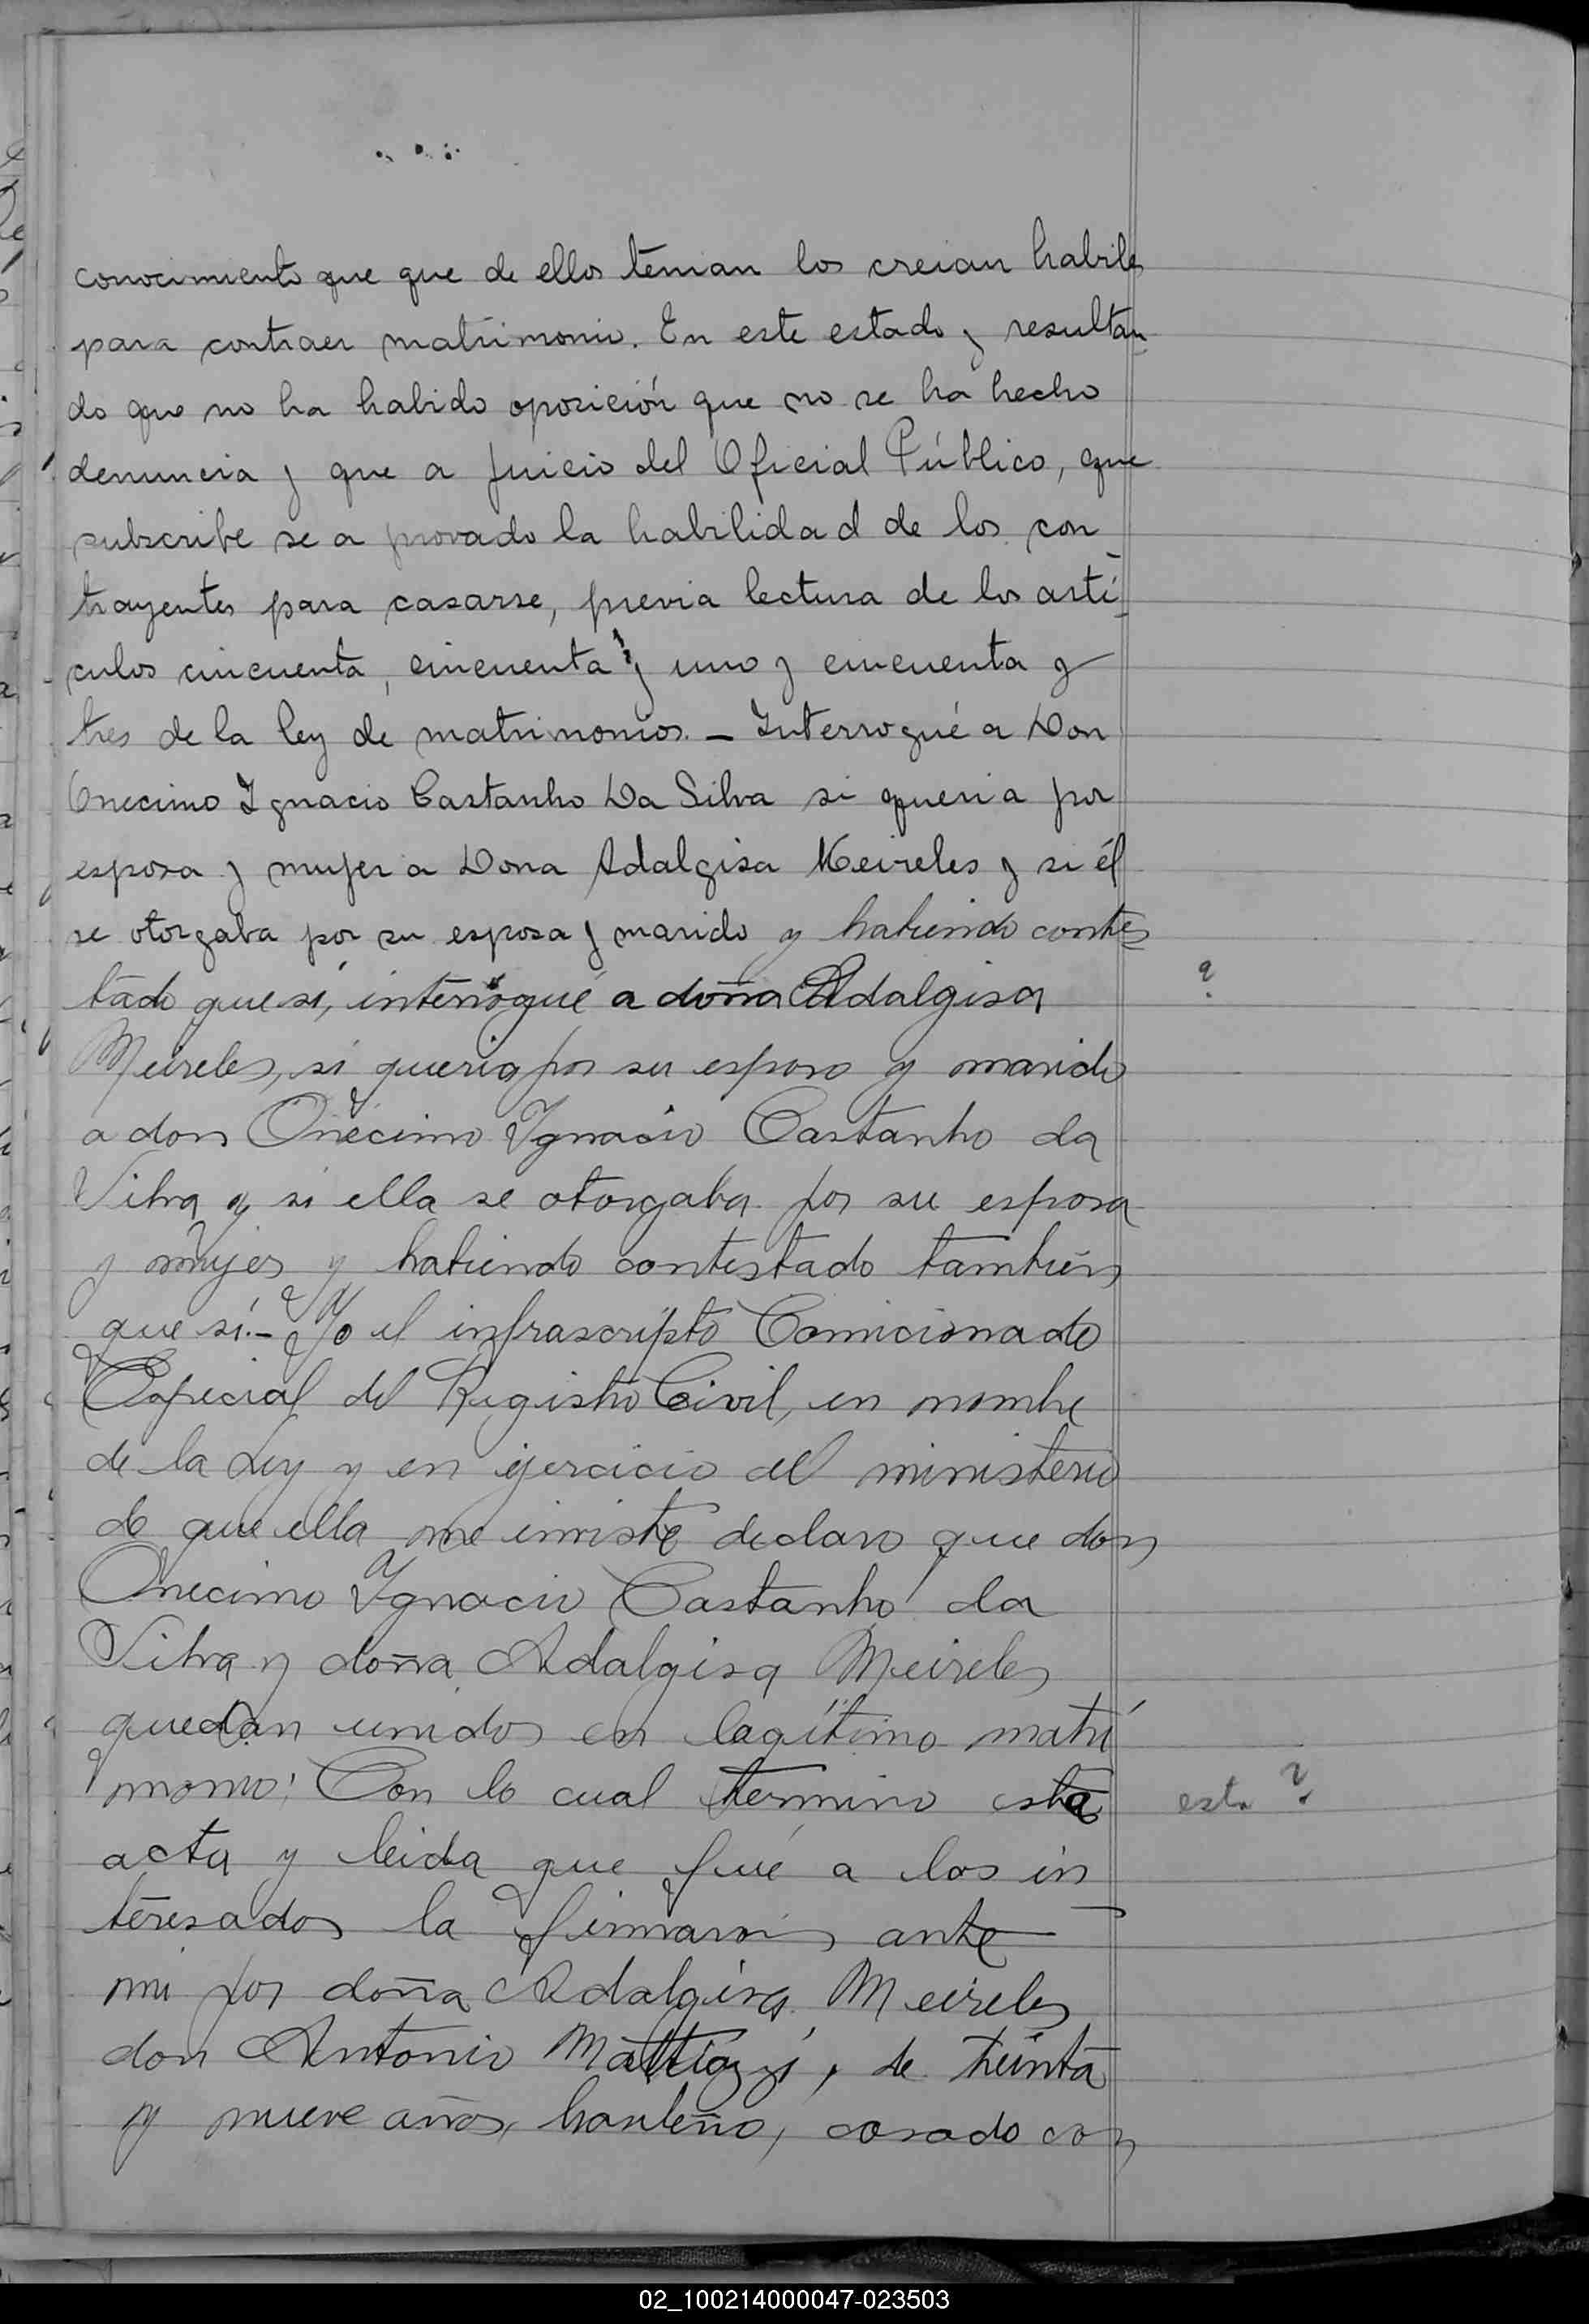 conocimiento que que de ellos tenian los creian habiles
para contraer matrimonio. En este estado y resultan
do que no ha habido oposición que no se ha hecho
denuncia y que a juicio del Oficial Público, que
subscribe se a provado la habilidad de los con
trayentes para casarse, previa lectura de los artí
culos cincuenta, cincuenta y uno y cincuenta y
tres de la ley de matrimonios. - Interrogué a Don
Onecimo Ignacio Castanho Da Silva si queria por
esposa y mujer a Dona Adalgisa Meireles y si él
se otorgaba por su esposa y marido y habiendo contes
tado que sí, interrogué a doña Adalgisa ?
Meireles, si queria por su esposo y marido
a don Onecimo Ignacio Castanho da
Silva y si ella se otorgaba por su esposa
y mujer y habiendo contestado tambien
que sí.- Yo el infrascripto Comicionado
Especial del Registro Civil, en nombre
de la Ley y en ejercicio del ministerio
de que ella me inviste declaro que don
Onecimo Ignacio Castanho da
Silva y doña Adalgisa Meireles
quedan unidos en lagítimo matri
monio. Con lo cual termino esta esta ?
acta y leida que fué a los in
teresados la firmaron ante
mi por doña Adalgisa Meireles
don Antonio Mattiazzi, de treinta
y nueve años, casado con
02_100214000047-023503